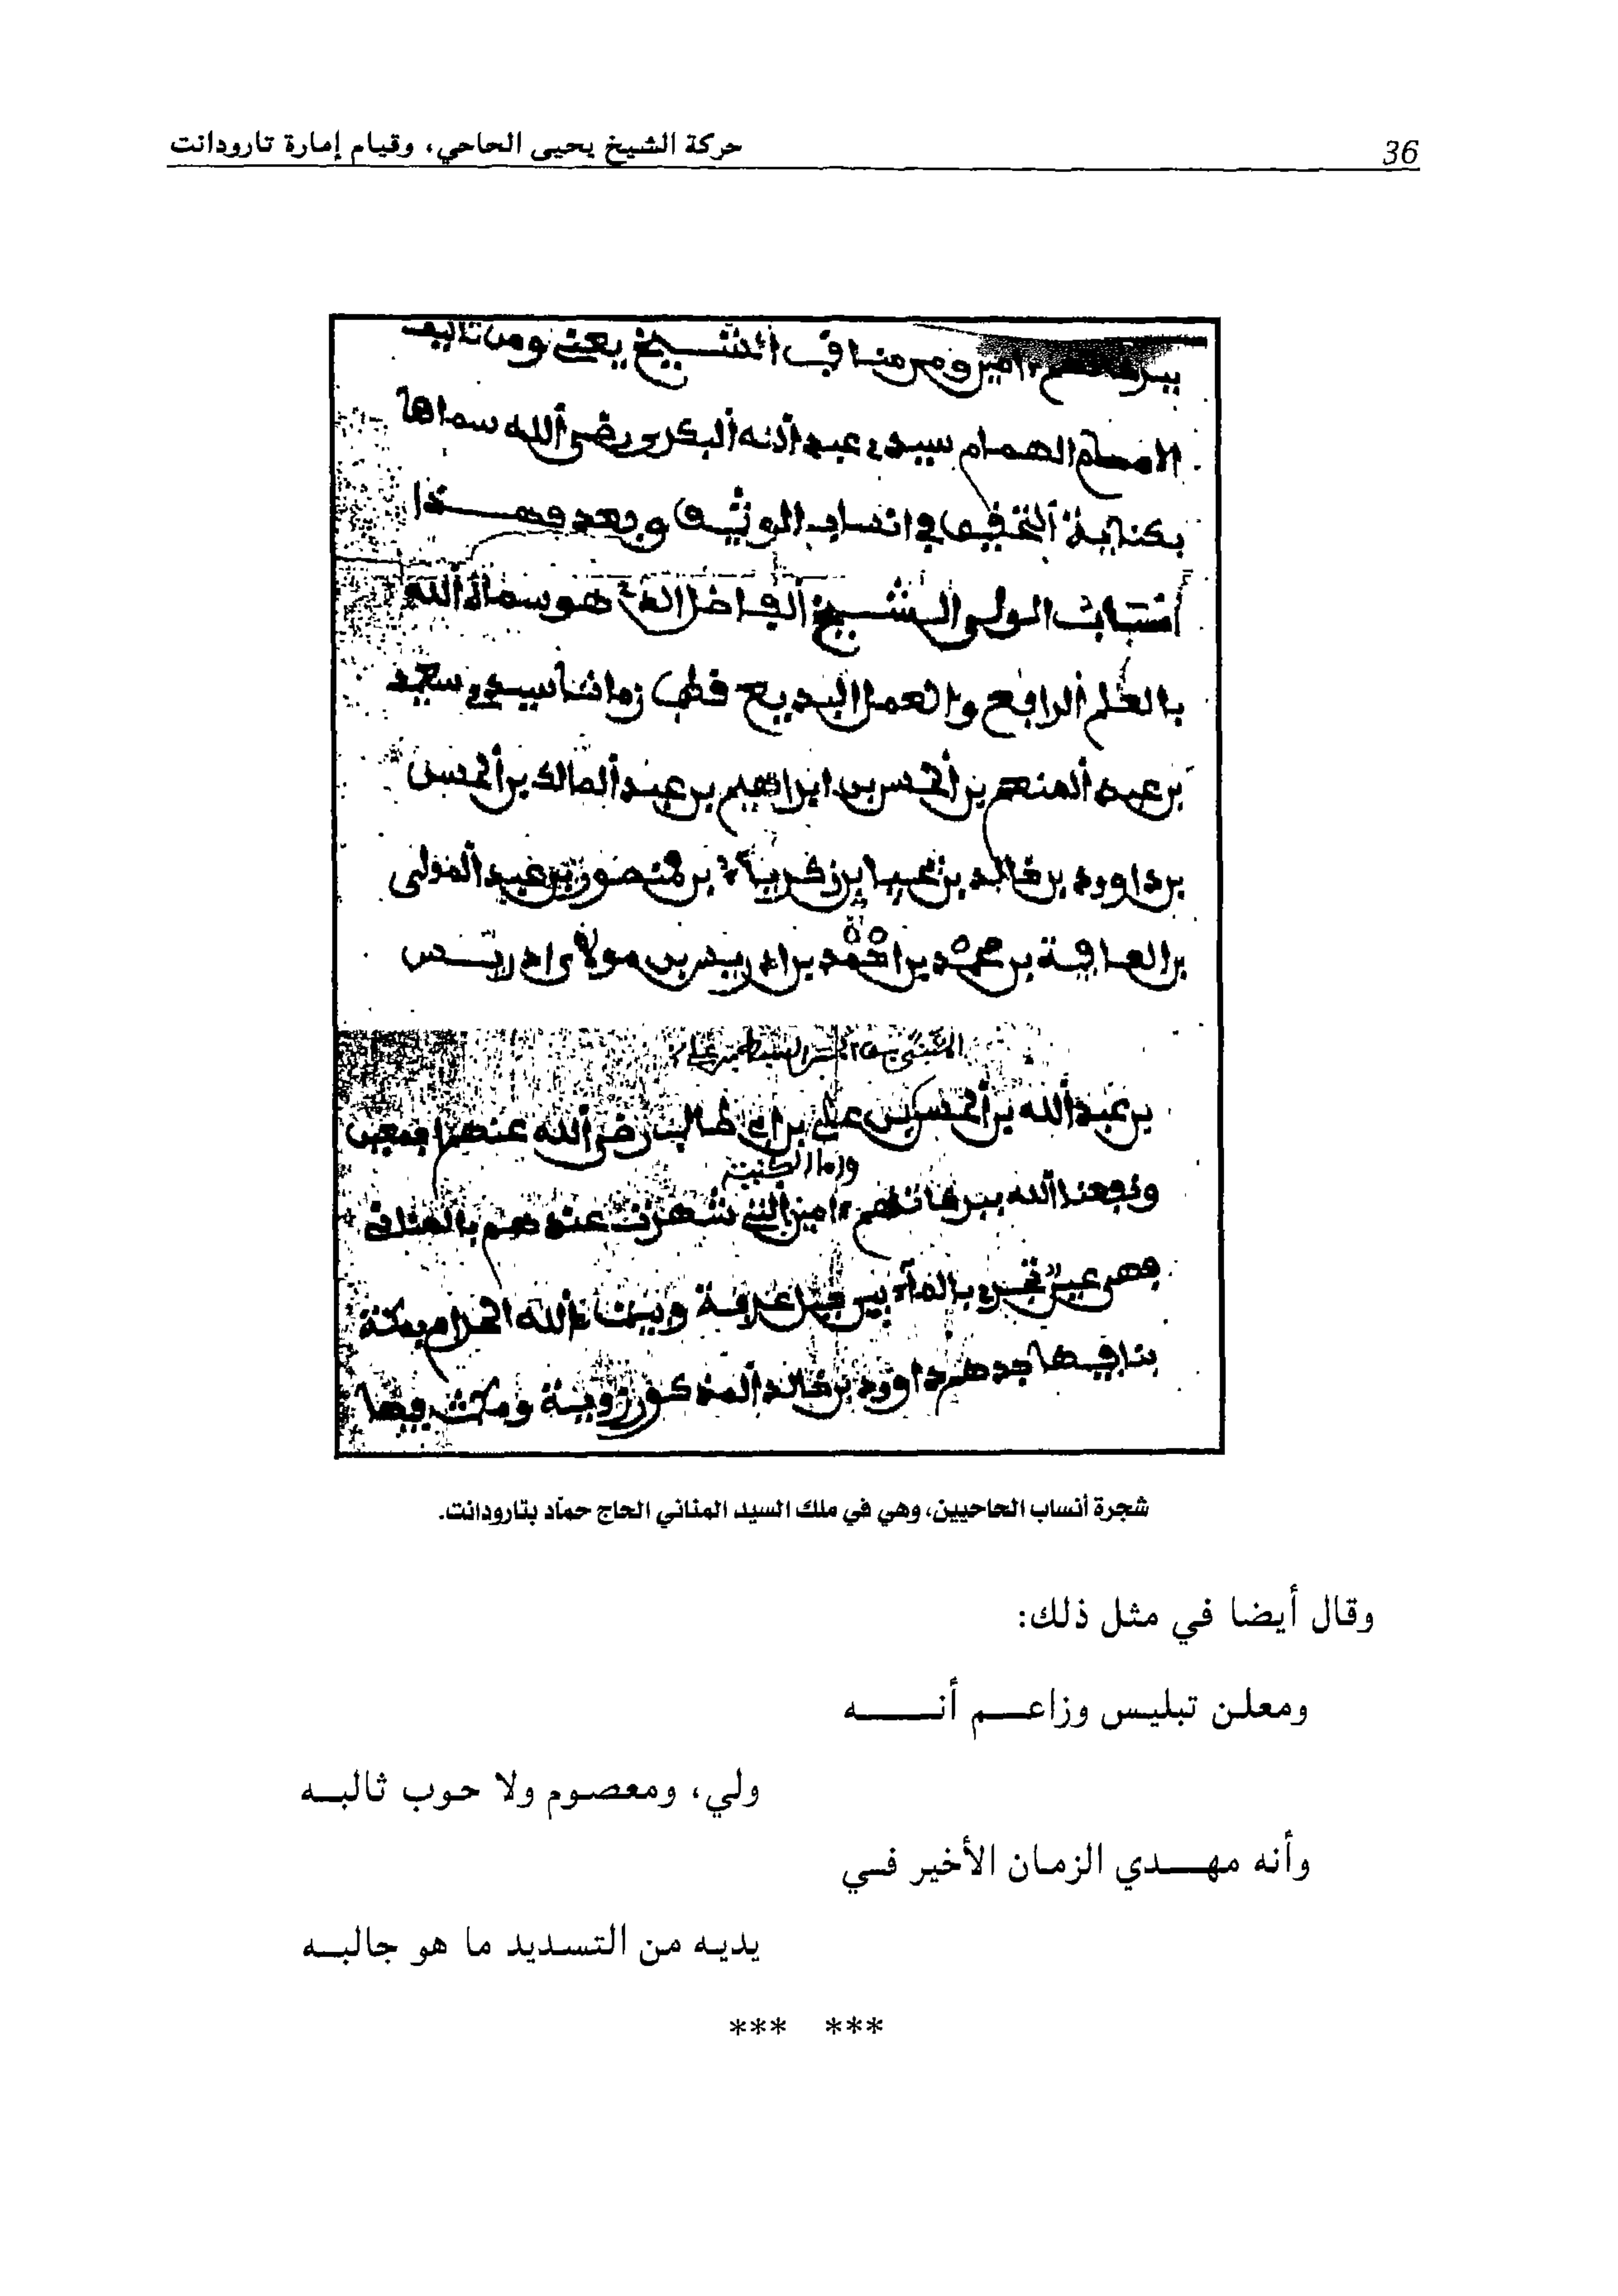 حركة الشيخ يحيى الحاحي، وقيام إمارة تارودانت
36
ومن مناقب الشيخ يعني ومن تاليف
الامام الهمام سيدي عبد الله البكري رضي الله سماها
بكناية التحقيق في انساب الوثيق وبعد فهذا
انتساب الولي الشيخ الفاضل الذي هو سماه الله
بالعلم الرافع والعمل البديع قطب زماننا سيدي سعيد
بن عبد المنعم بن الحسن بن ابراهيم بن عبد المالك بن الحسن
بن داوود بن خالد بن يحيا بن زكرياء بن منصور بن عبد المولى
بن العافية بن محمد بن احمد بن ادريس بن مولاي ادريس
بن عبد الله بن الحسن علي بن ابي طالب رضي الله عنهم اجمعين
ونفعنا الله ببركاتهم ءامين التي شهرت عندهم بالمناني
فهي عين تجري بالماء بين جبل عرفة وبيت الله الحرام بمكة
بنا فيها جدهم داوود بن خالد المذكور زوية ومكث فيها
شجرة أنساب الحاحيين، وهي في ملك السيد المناني الحاج حمّاد بتارودانت.
وقال أيضا في مثل ذلك:
ومعلن تبليس وزاعم أنه
ولي، ومعصوم ولا حوب ثالبه
وأنه مهدي الزمان الأخير في
يديه من التسديد ما هو جالبه
*** ***